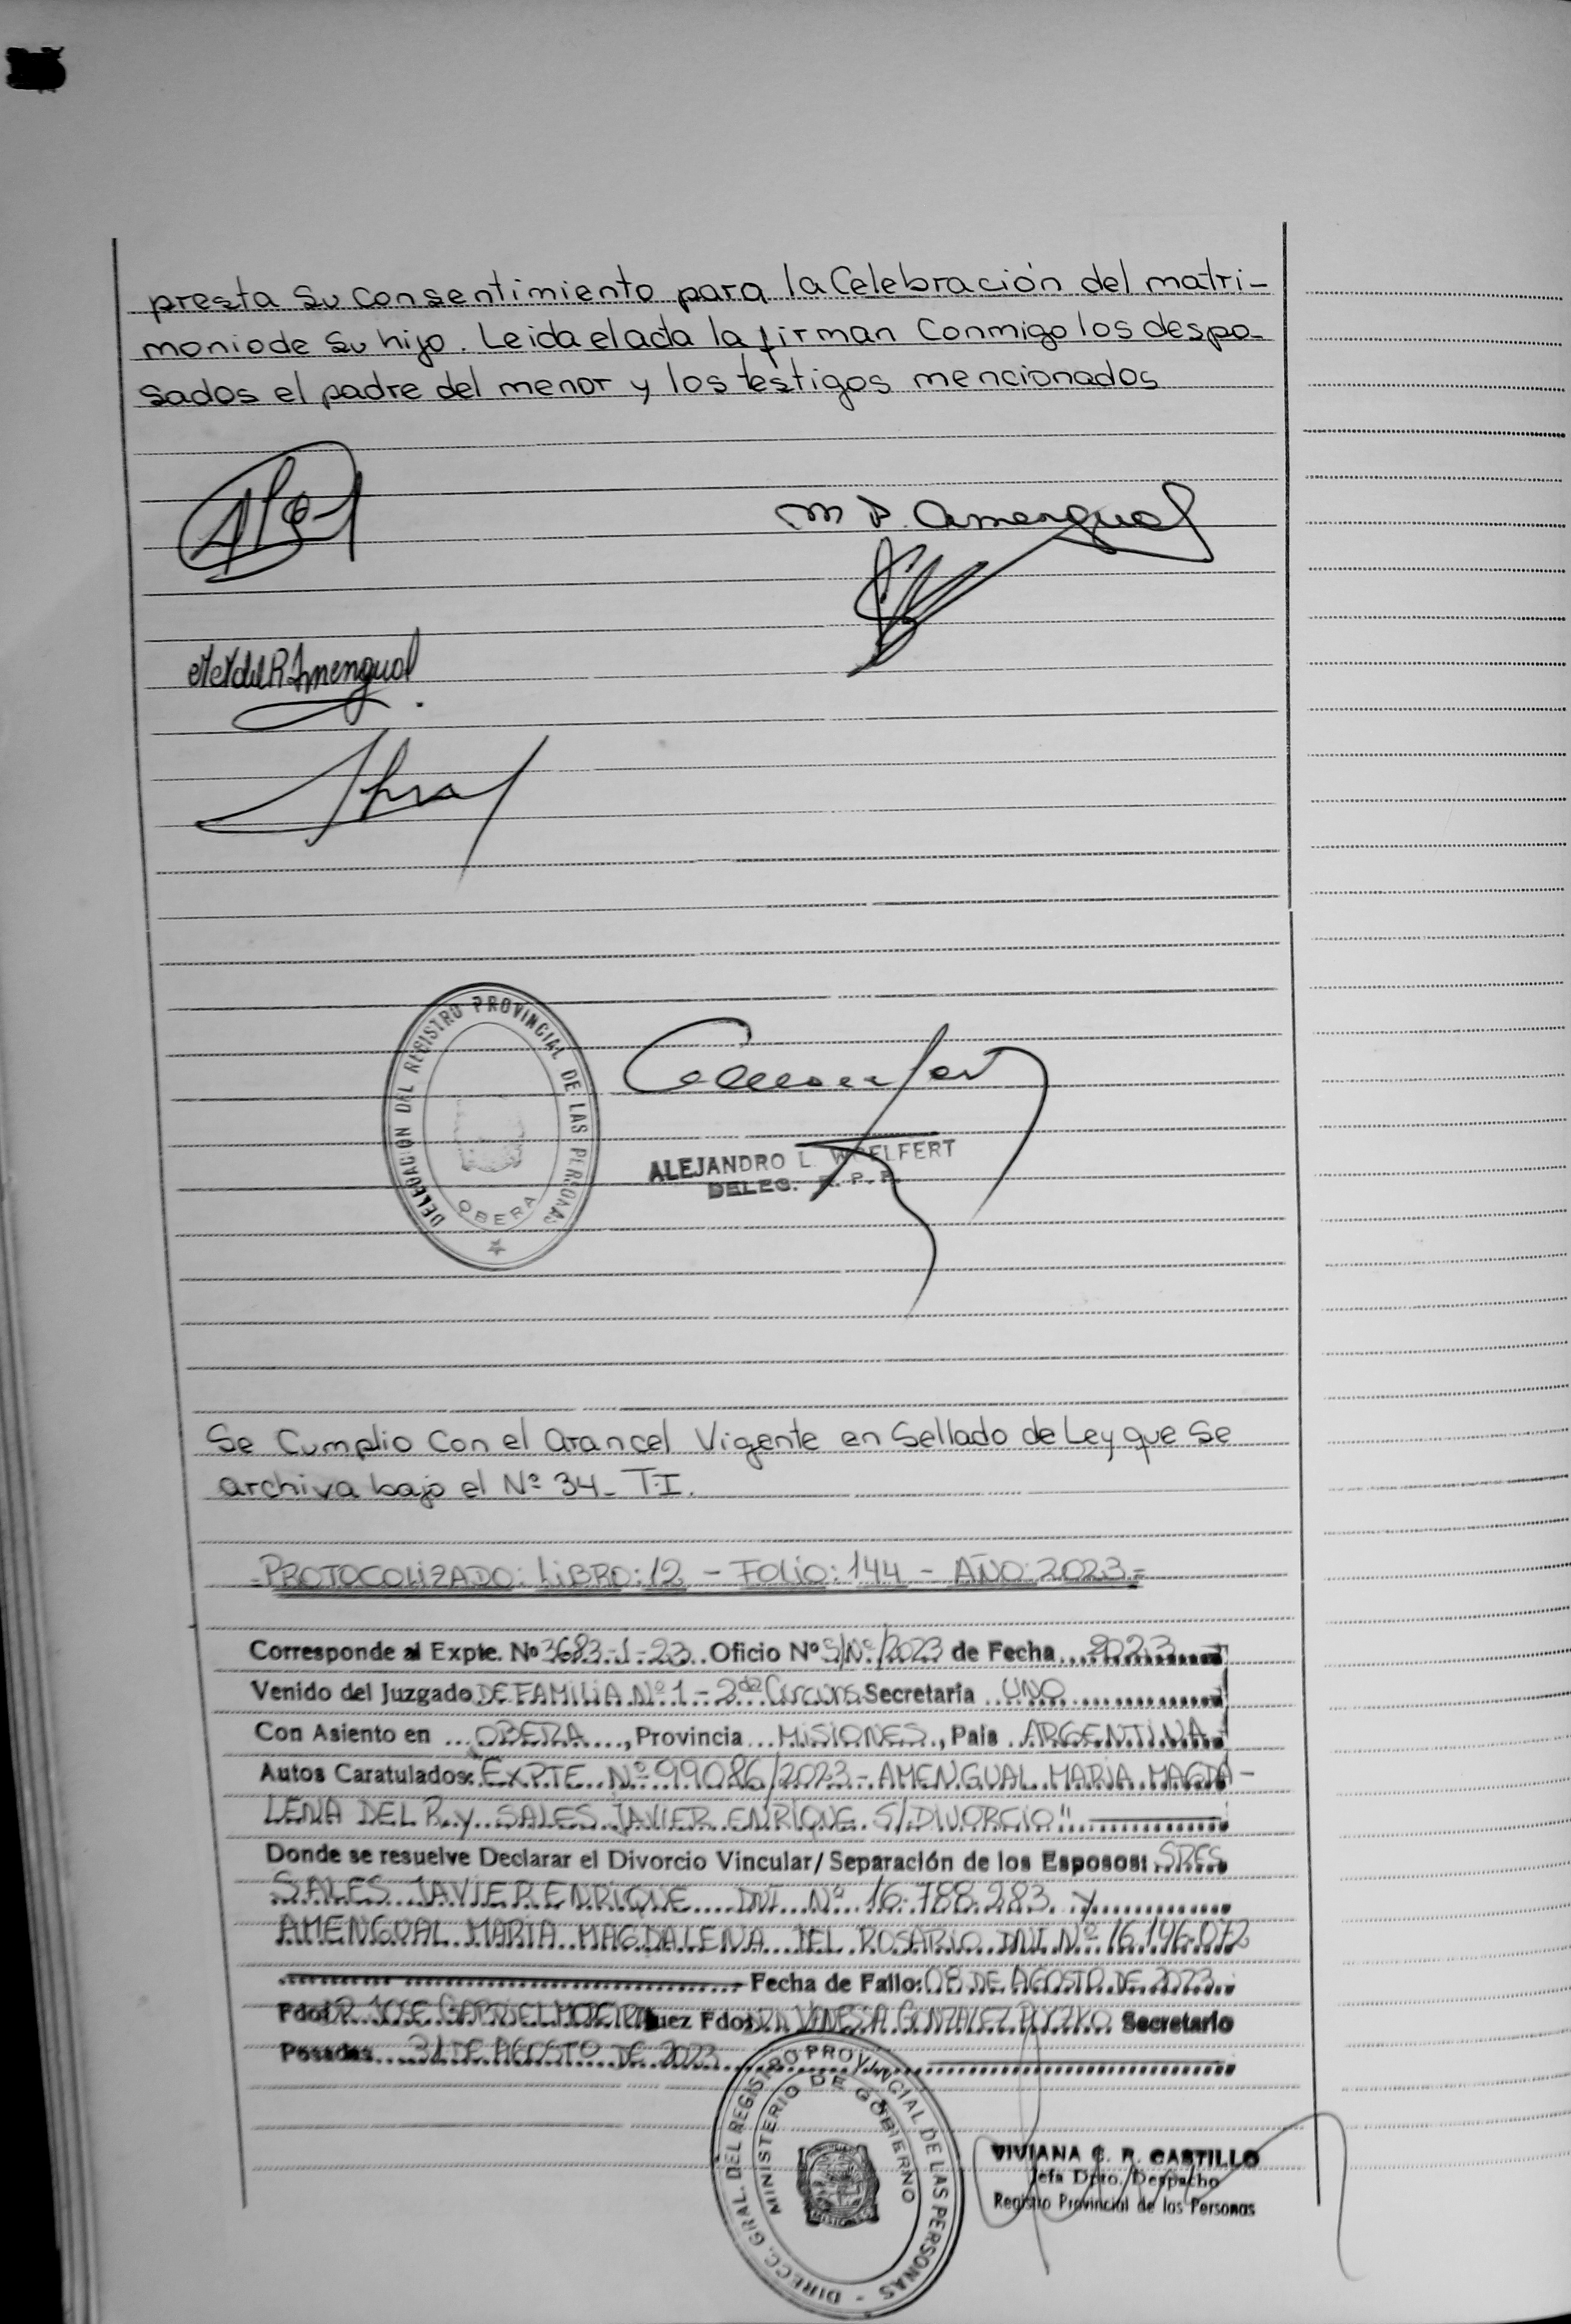 presta su consentimiento para la Celebración del matri-
monio de su hijo. Leida el acta la firman Conmigo los despo-
sados el padre del menor y los testigos mencionados
M R. Amengual
M M del R Amengual
DELEGACIÓN DEL REGISTRO PROVINCIAL DE LAS PERSONAS
OBERA
ALEJANDRO L. WOELFERT
DELEG. R. P. P.
Se Cumplio Con el arancel Vigente en Sellado de Ley que se
archiva bajo el Nº 34_ T.I.
-PROTOCOLIZADO: LIBRO: 12 - FOLIO: 144 - AÑO: 2023.=
Corresponde al Expte. Nº 3683-1-23 Oficio Nº S/Nº/2023 de Fecha 2023
Venido del Juzgado DE FAMILIA Nº 1 - 2da Circuns. Secretaría UNO
Con Asiento en OBERA, Provincia MISIONES, País ARGENTINA
Autos Caratulados: EXPTE Nº 99086/2023 - AMENGUAL MARIA MAGDA-
LENA DEL R. y SALES JAVIER ENRIQUE S/DIVORCIO"
Donde se resuelve Declarar el Divorcio Vincular/Separación de los Esposos: SRES
SALES JAVIER ENRIQUE DNI Nº 16.788.283 y
AMENGUAL MARIA MAGDALENA DEL ROSARIO DNI Nº 16.146.072
Fecha de Fallo: 08 DE AGOSTO DE 2023
Fdo: DR. JOSE GABRIEL MOREIRA Juez Fdo: DRA VANESSA GONZALEZ Secretario
Posadas 31 DE AGOSTO DE 2023
DIRECC. GRAL. DEL REGISTRO PROVINCIAL DE LAS PERSONAS -
MINISTERIO DE GOBIERNO
MISIONES
VIVIANA C. R. CASTILLO
Jefa Dpto. Despacho
Registro Provincial de las Personas